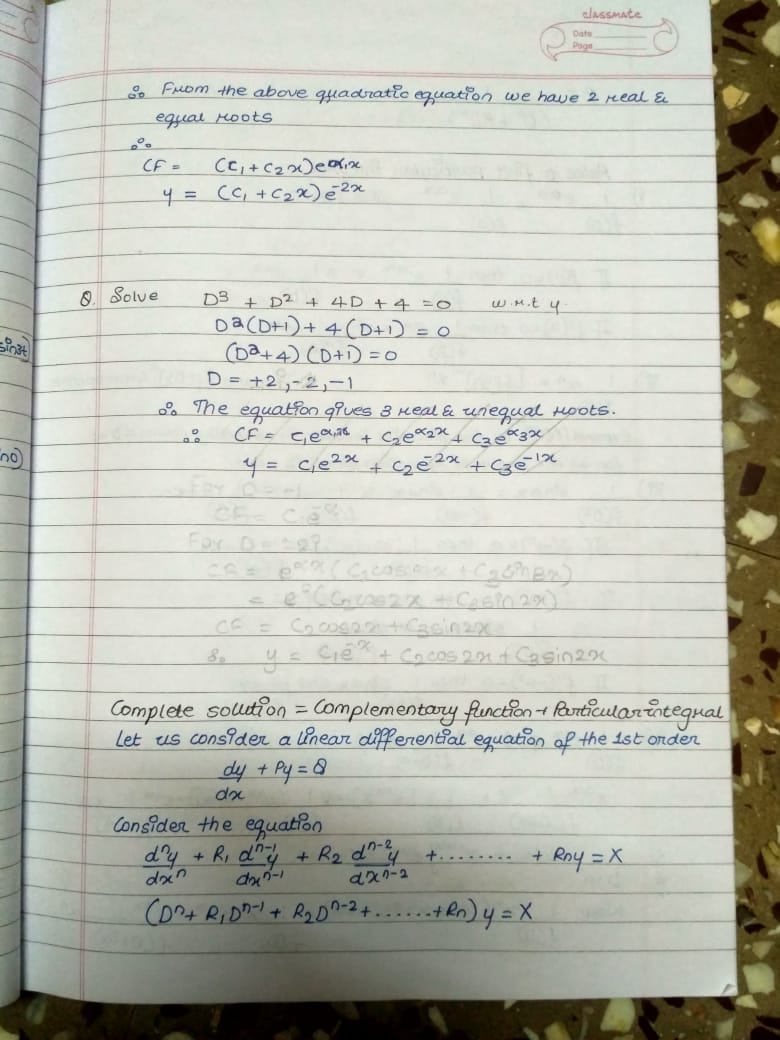 classmate
Date
Page
∴ From the above quadratic equation we have 2 real &
equal roots
∴
CF = (C₁ + C₂x)e^α₁x
y = (C₁ + C₂x) e^-2x
Q. Solve D³ + D² + 4D + 4 = 0 w.r.t y.
D²(D+1) + 4(D+1) = 0
sin3t
(D²+4) (D+1) = 0
D = +2, -2, -1
∴ The equation gives 3 real & unequal roots.
∴ CF = C₁e^α₁x + C₂e^α₂x + C₃e^α₃x
y = C₁e^2x + C₂e^-2x + C₃e^-1x
For D = -1
CF = C₁e^-x
For D = ±2i
CF = e^αx (C₁cosβx + C₂sinβx)
= e⁰(C₂cos2x + C₃sin2x)
CF = C₂cos2x + C₃sin2x
∴ y = C₁e^-x + C₂cos2x + C₃sin2x
Complete solution = Complementary function + Particular integral
Let us consider a linear differential equation of the 1st order
dy/dx + Py = Q
Consider the equation
dⁿy/dxⁿ + R₁ dⁿ⁻¹y/dxⁿ⁻¹ + R₂ dⁿ⁻²y/dxⁿ⁻² + ........ + Rny = X
(Dⁿ + R₁Dⁿ⁻¹ + R₂Dⁿ⁻² + ...... + Rn) y = X